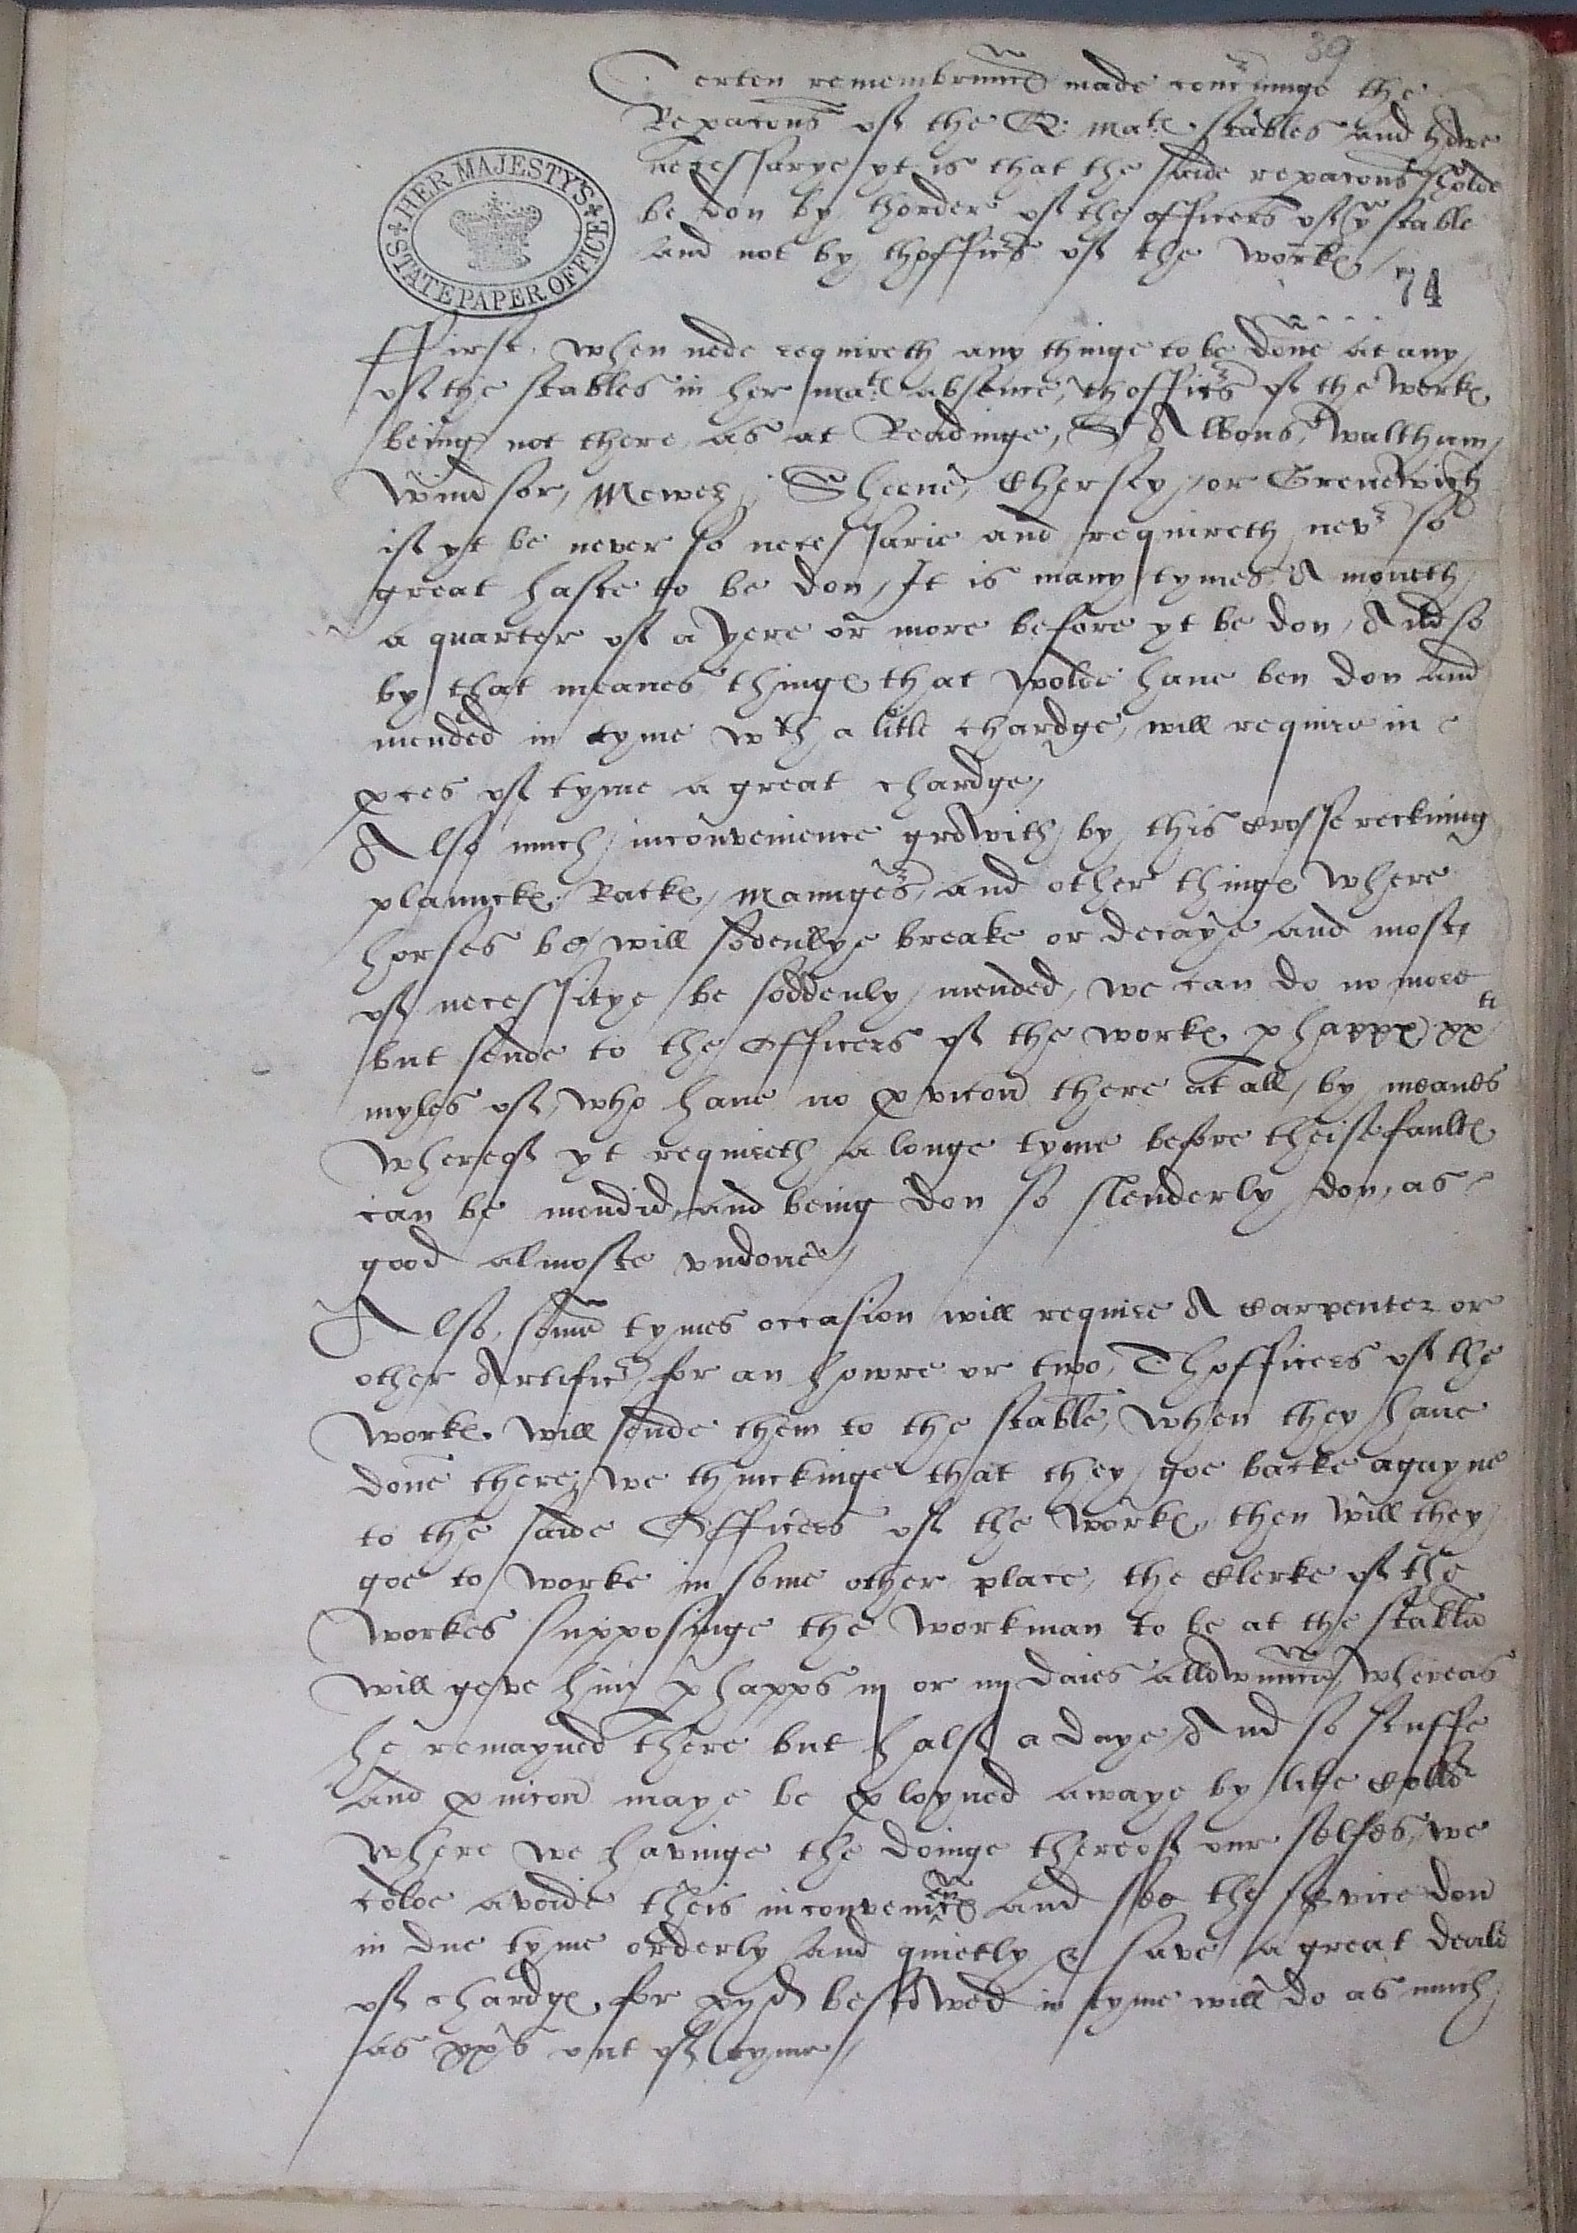 39
Certen remembraunc made concninge the
Repacons off the Q: matꝭ stables and howe
necessarye yt is that the saide repacons sholde
be don by thorder off the officers off yͤ stable
and not by thofficrs off the workꝭ /
HER MAJESTY'S STATE PAPER OFFICE
74
First, when nede requireth any thinge to be done at any
off the stables in her matꝭ absence, thofficrs off the workꝭ
being not there as at Readinge, St Albons, Waltham,
Windsor, Mewes, Sheene, Chersey, or Grenewich
iff yt be never so necessarie and requireth nevr so
great haste to be don, It is many tymes A moneth,
a quarter off a yere or more before yt be don, And so
by that meanes thingꝭ that wolde haue ben don and
mended in tyme wth a litle chardge, will require in
ꝓces off tyme a great chardge /
Also much inconvenience growith by this crosse reckning
planckꝭ, Rackꝭ, Maungers, and other thingꝭ where
horses be, will sodenllye breake or decaye and moste
off necessitye be soddenly mended, we can do no more
but sende to the Officers off the workꝭ ꝑhappꝭ xxti
myles off, who haue no ꝓvicon there at all, by meanes
Whereoff yt requireth a longe tyme before theise faultꝭ
can be mendid, and being don so slenderly don, as
good almoste vndone /
Also, some tymes occasion will require A Carpenter or
other Artificr for an howre or two, Thofficers off the
workꝭ will sende them to the stable, when they haue
done there, we thinckinge that they goe backe agayne
to the saide Officers off the workꝭ, then will they
goe to worke in some other place, the Clerke off the
workes supposinge the workman to be at the stable
will geve him ꝑhapps iij or iiij daies allowaunce, whereas
he remayned there but halff a daye, And so stuffe
and ꝓuicon maye be ꝑloyned awaye by like collor
Where we havinge the doinge thereoff our selfes, we
colde avoide theis inconveniencꝭ and see the service don
in due tyme orderly and quietly & save a great deale
off chardgꝭ, for xijd bestowed in tyme will do as much
as xxs out off tyme //